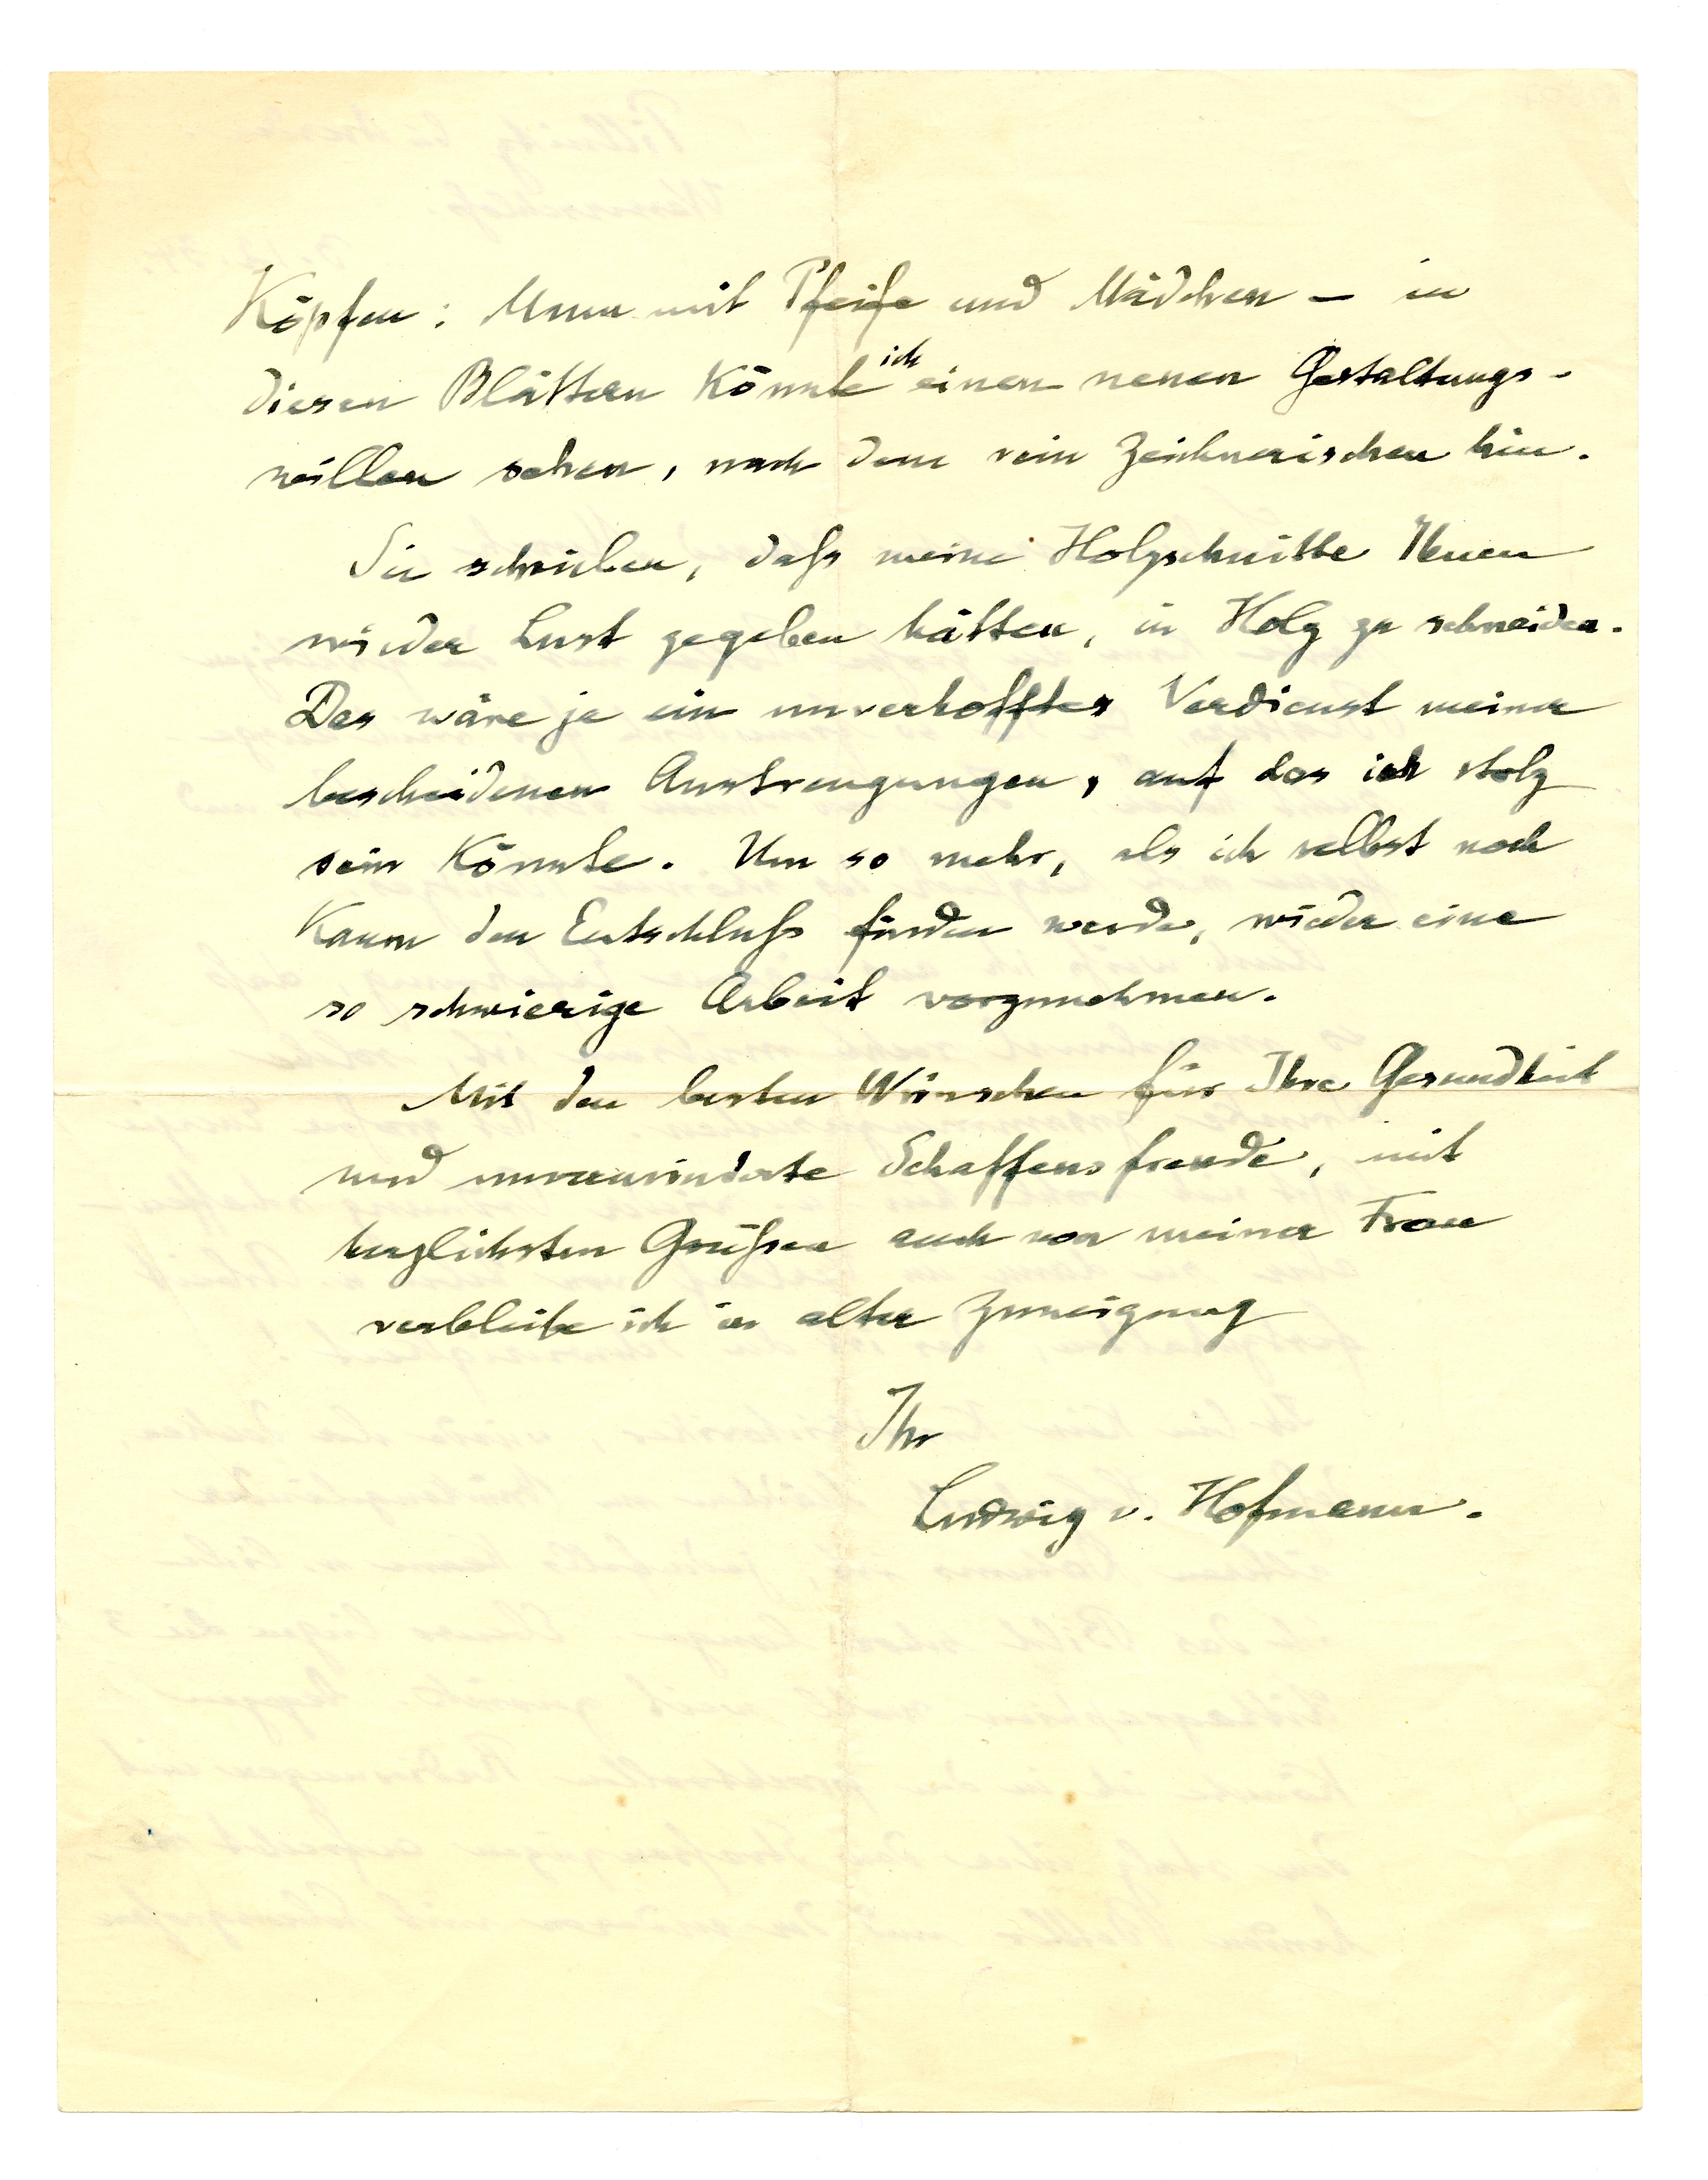 Köpfen: Mann mit Pfeife und Mädchen – in
diesen Blättern könnte ich einen neuen Gestaltungs-
willen sehen, nach dem rein Zeichnerischen hin.
Sie schrieben, daß meine Holzschnitte Ihnen
wieder Lust gegeben hätten, in Holz zu schneiden.
Das wäre ja ein unverhofftes Verdienst meiner
bescheidenen Anstrengungen, auf das ich stolz
sein könnte. Um so mehr, als ich selbst noch
kaum den Entschluß finden werde, wieder eine
so schwierige Arbeit vorzunehmen.
Mit den besten Wünschen für Ihre Gesundheit
und unverminderte Schaffensfreude, mit
herzlichsten Grüßen auch von meiner Frau
verbleibe ich in alter Zuneigung
Ihr
Ludwig v. Hofmann.